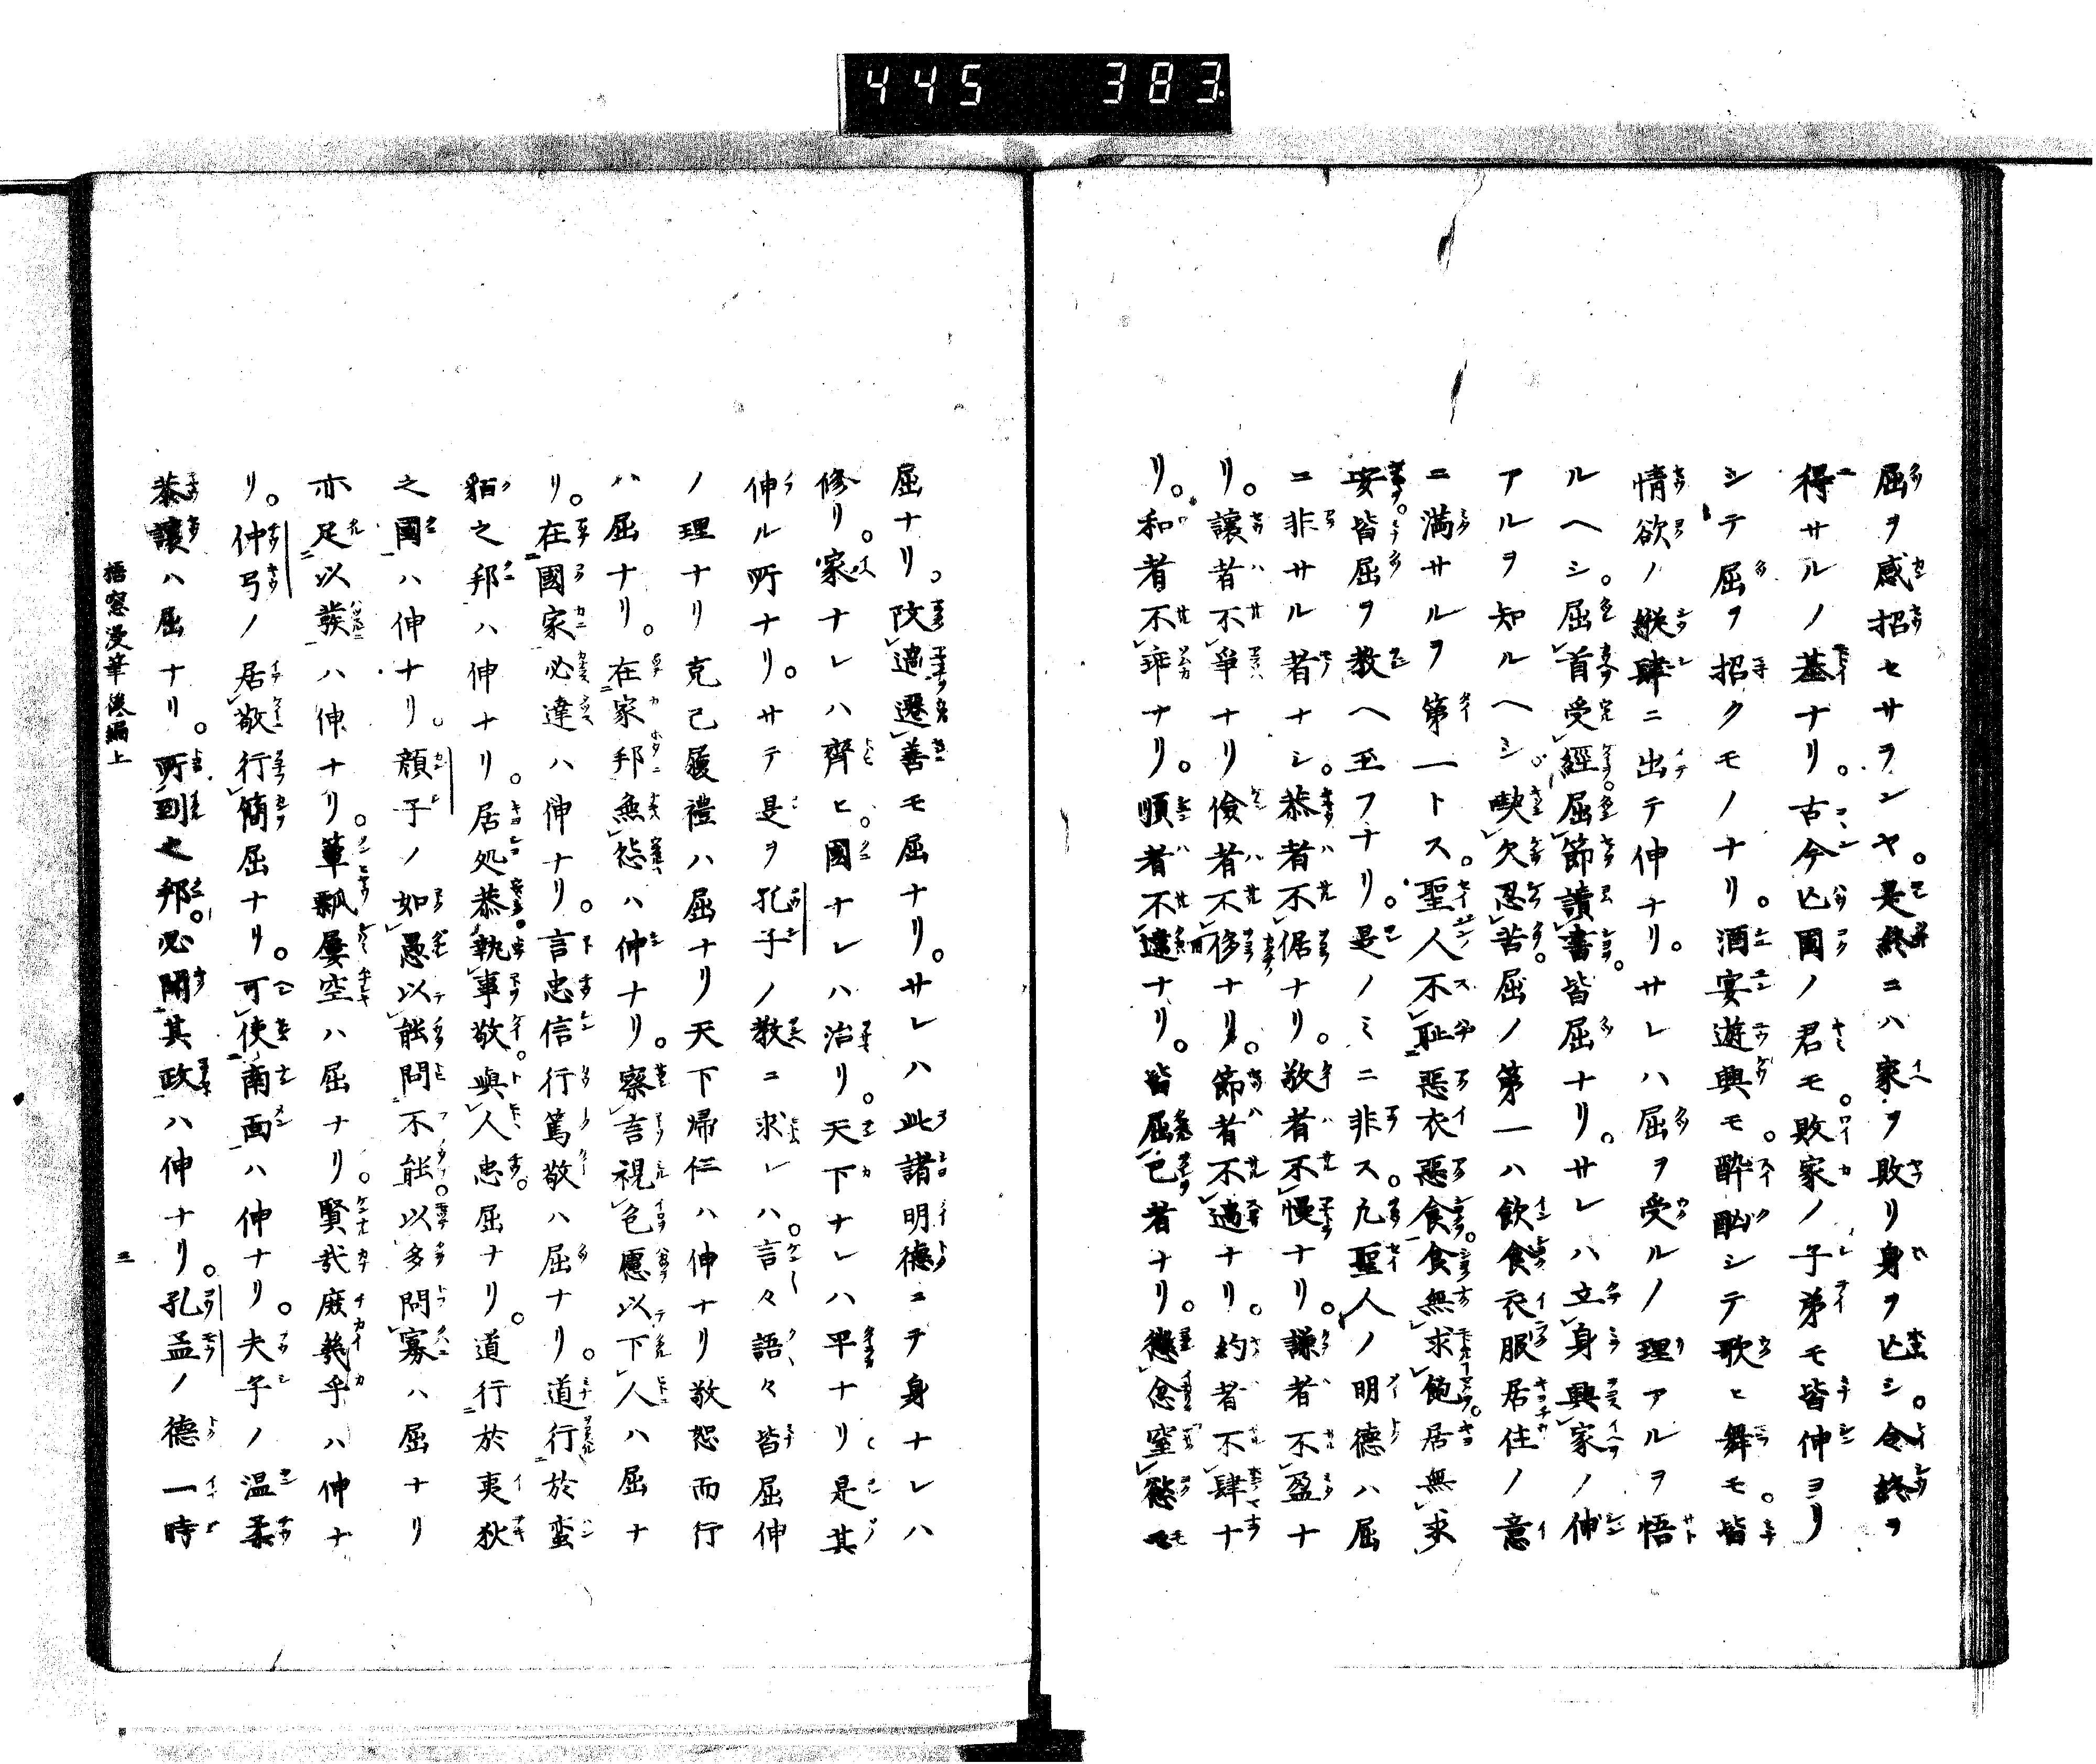 445 383
屈ヲ感招セサランヤ。是終ニハ家ヲ敗リ身ヲ亡シ。令終ヲ
得サルノ基ナリ。古今亡國ノ君モ。敗家ノ子弟モ皆伸ヨリ
シテ屈ヲ招クモノナリ。酒宴遊興モ。酔酗シテ歌ヒ舞モ。皆
情欲ノ縱肆ニ出テ伸ナリ。サレハ屈ヲ受ルノ理アルヲ悟
ルヘシ。屈首受經。屈節讀書。皆屈ナリ。サレハ立身興家ノ伸
アルヲ知ルヘシ。缺欠忍苦。屈ノ第一ハ飲食衣服居住ノ意
ニ滿サルヲ第一トス。聖人不恥惡衣惡食。食無求飽。居無求
安。皆屈ヲ教ヘ玉フナリ。是ノミニ非ス。凡聖人ノ明德ハ屈
ニ非サル者ナシ。恭者不倨ナリ。敬者不慢ナリ。謙者不盈ナ
リ。讓者不爭ナリ儉者不侈ナリ。節者不過ナリ。約者不肆ナ
リ。和者不乖ナリ。順者不違ナリ。皆屈已者ナリ。懲忿窒慾モ
屈ナリ。改過遷善モ屈ナリ。サレハ此諸明德ニテ身ナレハ
修リ。家ナレハ齊ヒ。國ナレハ治リ。天下ナレハ平ナリ是其
伸ル所ナリ。サテ是ヲ孔子ノ教ニ求レハ。言々語々皆屈伸
ノ理ナリ克己履禮ハ屈ナリ天下帰仁ハ伸ナリ敬恕而行
ハ屈ナリ。在家邦無怨ハ伸ナリ。察言視色慮以下人ハ屈ナ
リ。在國家必達ハ伸ナリ。言忠信行篤敬ハ屈ナリ。道行於蛮
貊之邦ハ伸ナリ。居処恭。執事敬。與人忠。屈ナリ。道行於夷狄
之國ハ伸ナリ。顔子ノ如愚以能問不能。以多問寡ハ屈ナリ
亦足以發ハ伸ナリ。簞瓢屢空ハ屈ナリ。賢哉庶幾乎ハ伸ナ
リ。仲弓ノ居敬行簡屈ナリ。可使南面ハ伸ナリ。夫子ノ温柔
恭讓ハ屈ナリ。所到之邦。必聞其政ハ伸ナリ。孔孟ノ德一時
梧窓漫筆後編上 三